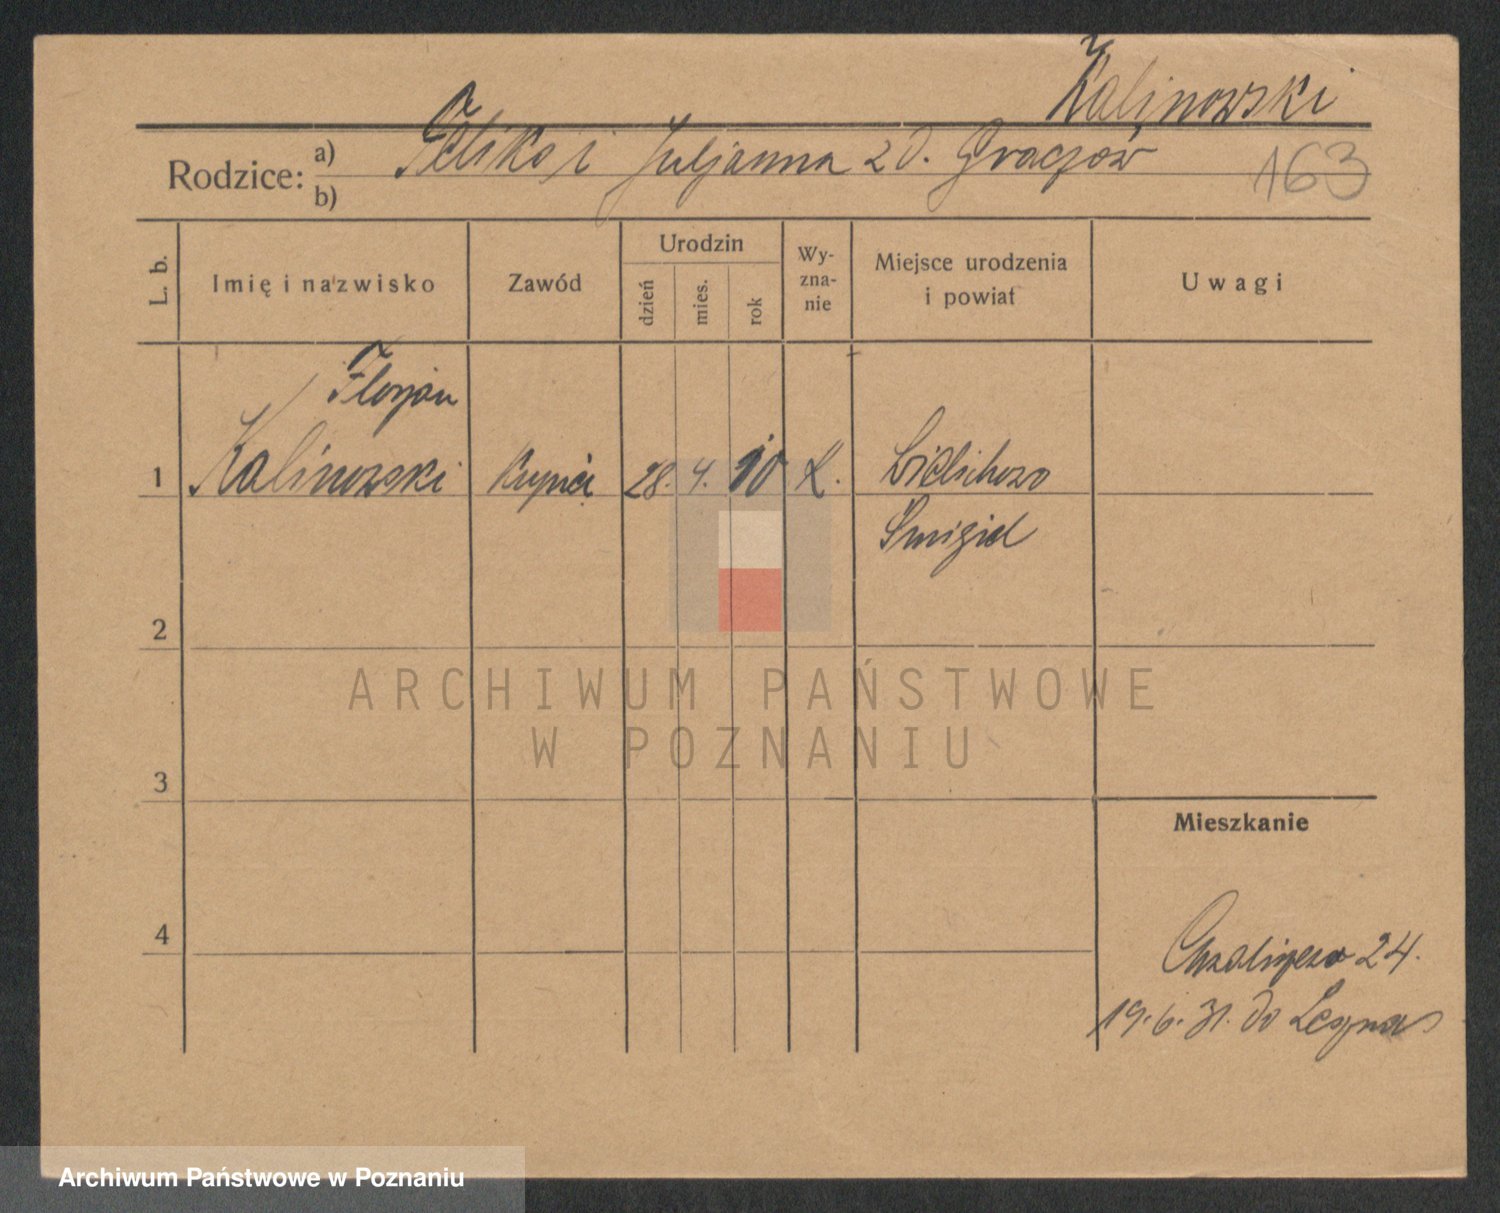 Kalinowski
Rodzice: a) Feliks i Juljanna z d. Graczów
b)
163
L. b.
Imię i nazwisko
Zawód
Urodzin
dzień
mies.
rok
Wy-
zna-
nie
Miejsce urodzenia
i powiat
Uwagi
Florjan
1 Kalinowski kupiec 28. 4. 10 k.
Śmigiel
2
3
4
Mieszkanie
24.
19.6.31. do
ARCHIWUM PAŃSTWOWE
W POZNANIU
Archiwum Państwowe w Poznaniu